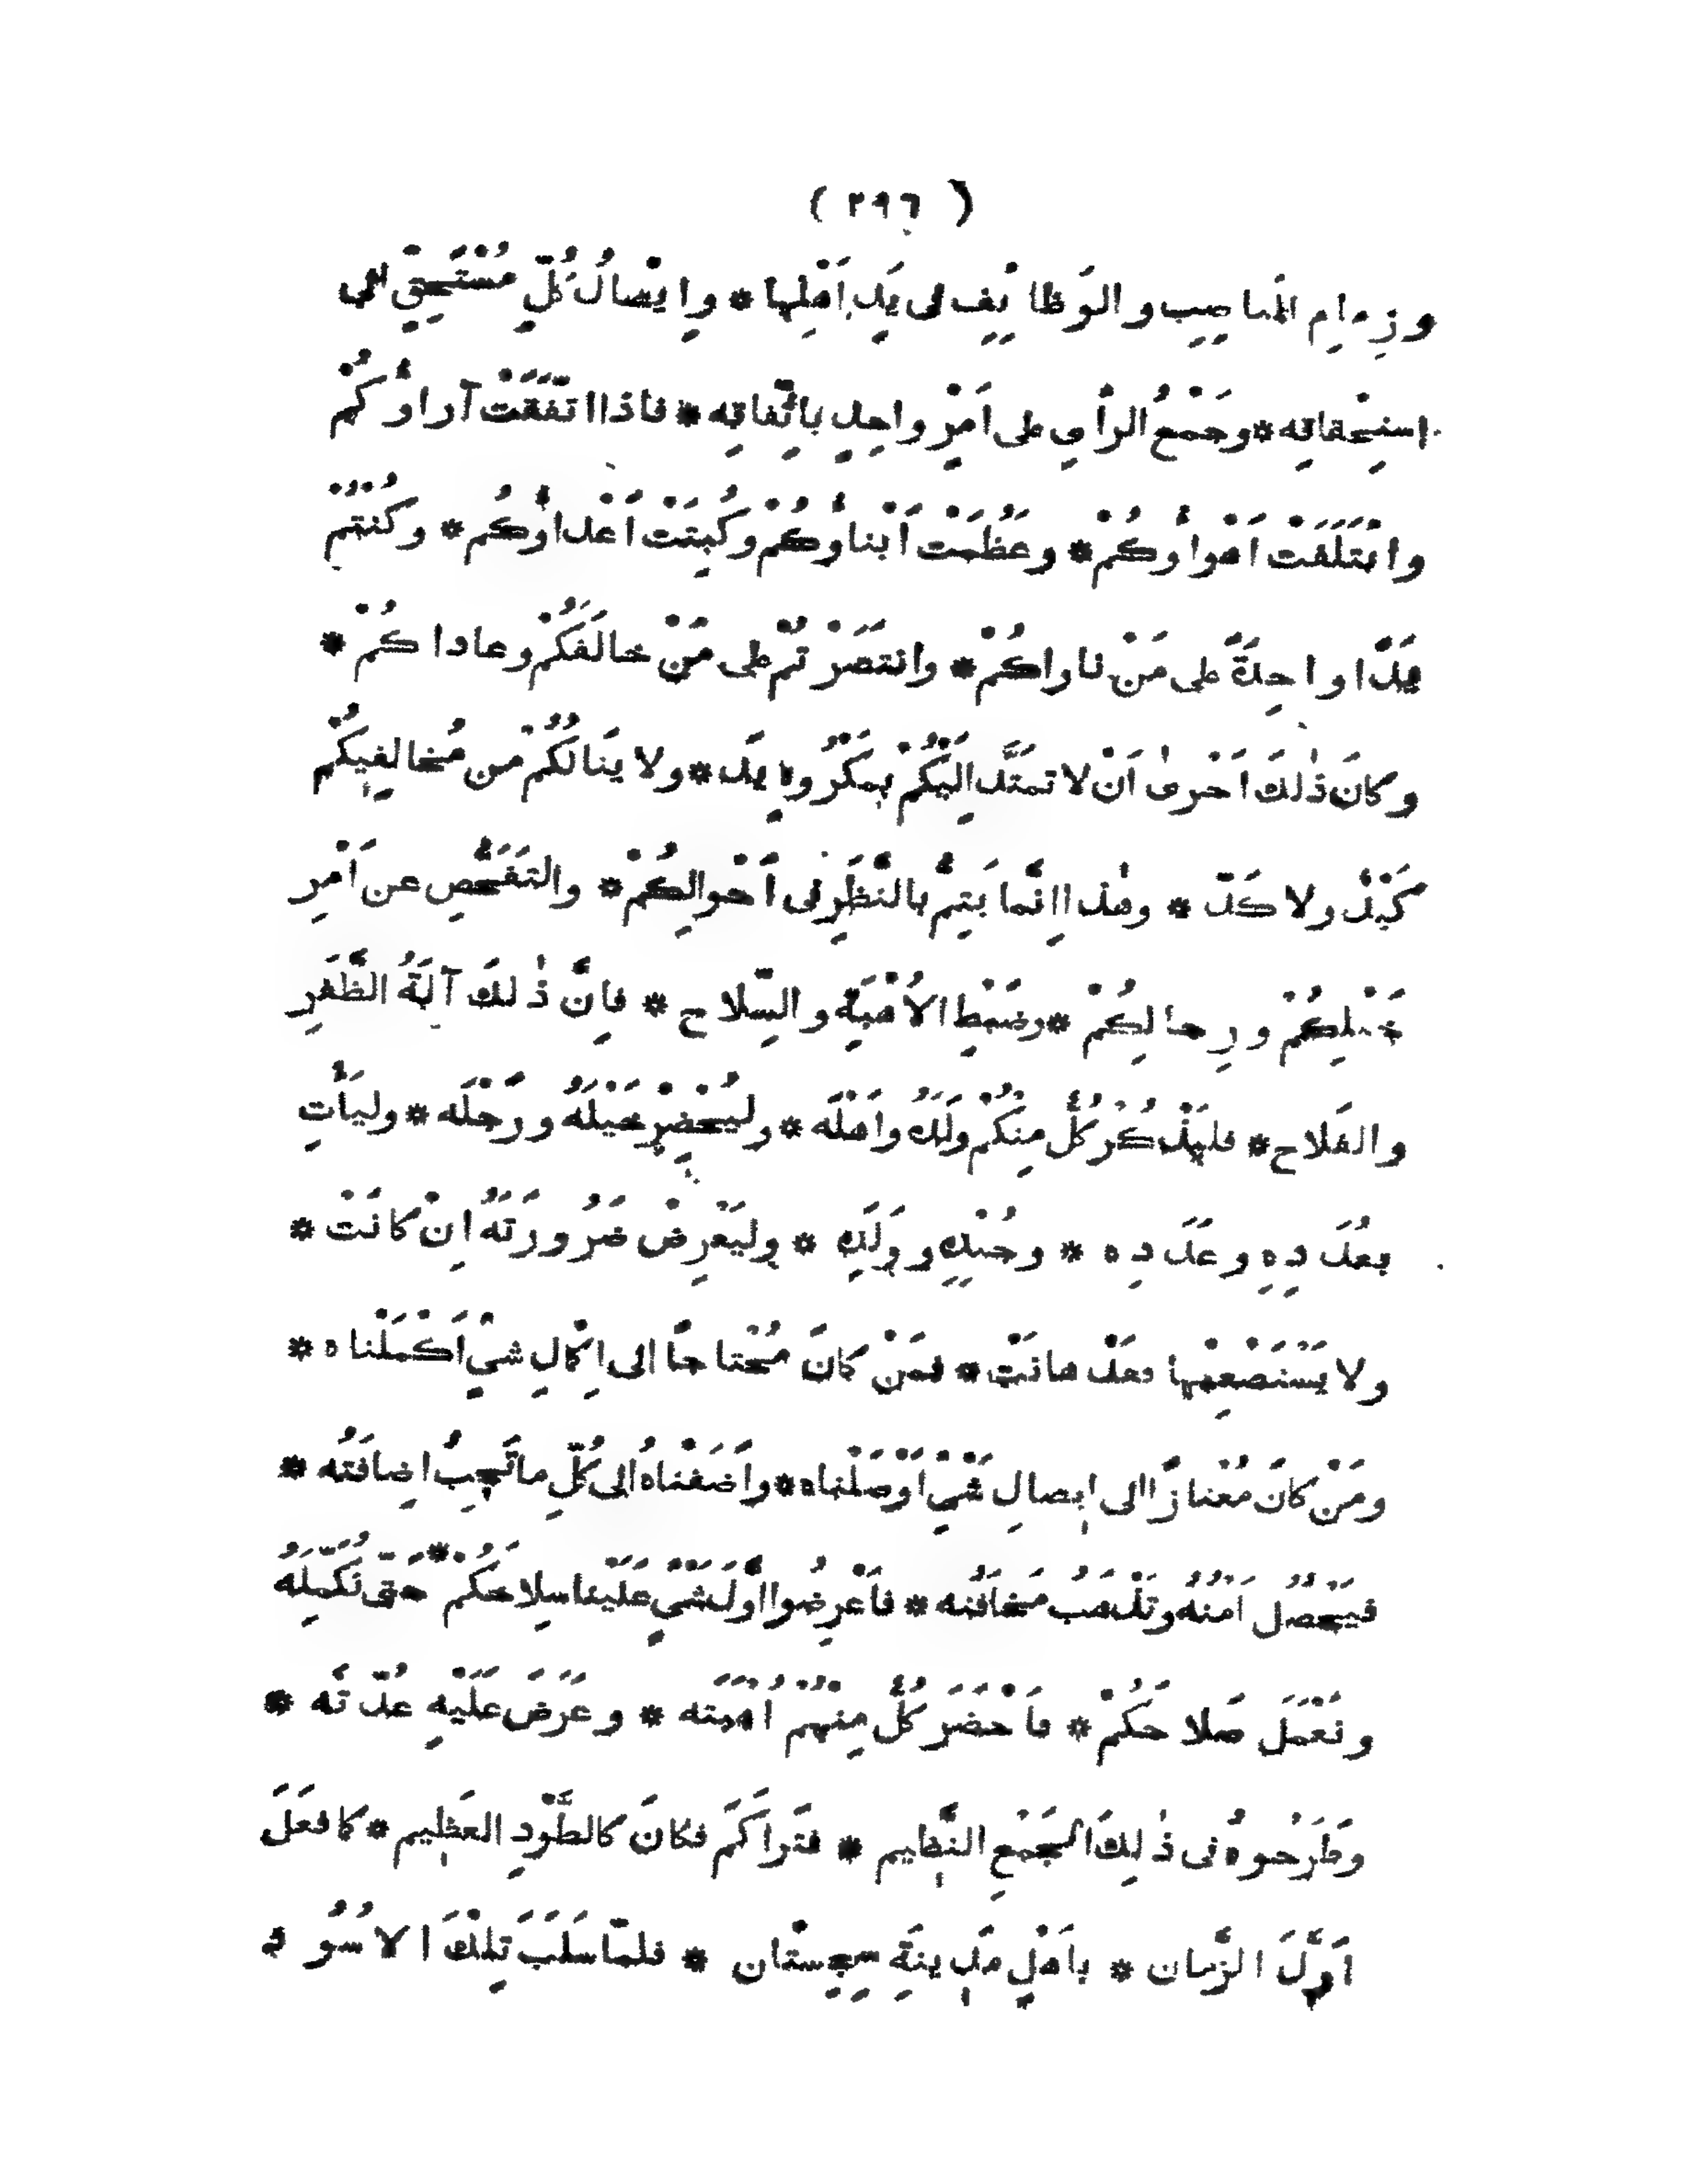 ( ٢٩٦ )
وزِمامِ المَناصِبِ والوَظائِفِ الى يَدِ اَهْلِها * وايْصالُ كُلِّ مُسْتَحِقٍّ الى
اسْتِحْقاقِه * وجَمْعُ الرأىِ على اَمْرٍ واحِدٍ باتّفاقِه * فاذا اتّفَقَتْ آراؤُكُمْ
وائْتَلَفَتْ اَهْواؤُكُمْ * وعَظُمَتْ اَبْناؤُكُمْ وكُبِتَتْ اَعْداؤُكُم * وكُنْتُمْ
يَدًا واحِدَةً على مَنْ ناواكُمْ * وانتَصَرْتُمْ على مَنْ خالَفَكُمْ وعاداكُمْ *
وكانَ ذٰلكَ اَحْرىٰ اَنْ لا تمتَدَّ اِلَيْكُمْ بِمَكْرُوهٍ يَد * ولا يَنالَكُمْ من مُخالِفِيكُمْ
كَيْدٌ ولا كَدّ * وهٰذا اِنَّما يَتِمُّ بالنَّظَرِ فى اَحْوالِكُمْ * والتَفَحُّصِ عن اَمْرِ
خَيْلِكُمْ ورِجالِكُمْ * وضَبْطِ الاُهْبَةِ والسِّلاح * فاِنَّ ذٰلكَ آلَةُ الظَّفَرِ
والفَلاح * فليَذْكُرْ كُلٌّ مِنكُمْ ولَدَهُ واَهْلَه * وليُحْضِرْ خَيْلَهُ ورَجْلَه * وليَأْتِ
بعُدَدِهِ وعَدَدِه * وجُنْدِهِ ووَلَدِهِ * وليَعْرِضْ ضَرُورَتَهُ اِنْ كانَتْ *
ولا يَسْتَصْعِبْها فقَدْ هانَتْ * فمَنْ كانَ مُحْتاجًا الى اِكْمالِ شيْءٍ اَكْمَلْناه *
ومَنْ كانَ مُعْتازًا الى اِيصالِ شَيْءٍ اَوْصَلْناه * واَضَفْناهُ الى كُلّ ما تَجِبُ اضافَتُه *
فيَحْصُل اَمْنُهُ وتَذْهَبُ مَخافَتُه * فاَعْرِضُوا اَوَّلَ شَيْءٍ عَلَيْنا سِلاحَكُمْ * حَتّى نُكَمّلَهُ
ونَعْمَلَ صَلاحَكُمْ * فاَحْضَرَ كُلٌّ مِنْهُمْ اُهْبَتَه * وعَرَضَ عَلَيْهِ عُدّتَه *
وطَرَحُوهُ فى ذٰلِكَ الجَمْعِ النَّظِيم * فتَراكَمَ فكانَ كالطَّوْدِ العَظِيم * كما فعَلَ
اَوَّلَ الزَّمان * باَهْلِ مَدِينَةِ سِجِسْتان * فلمّا سَلَبَ تِلْكَ الاُسُودَ